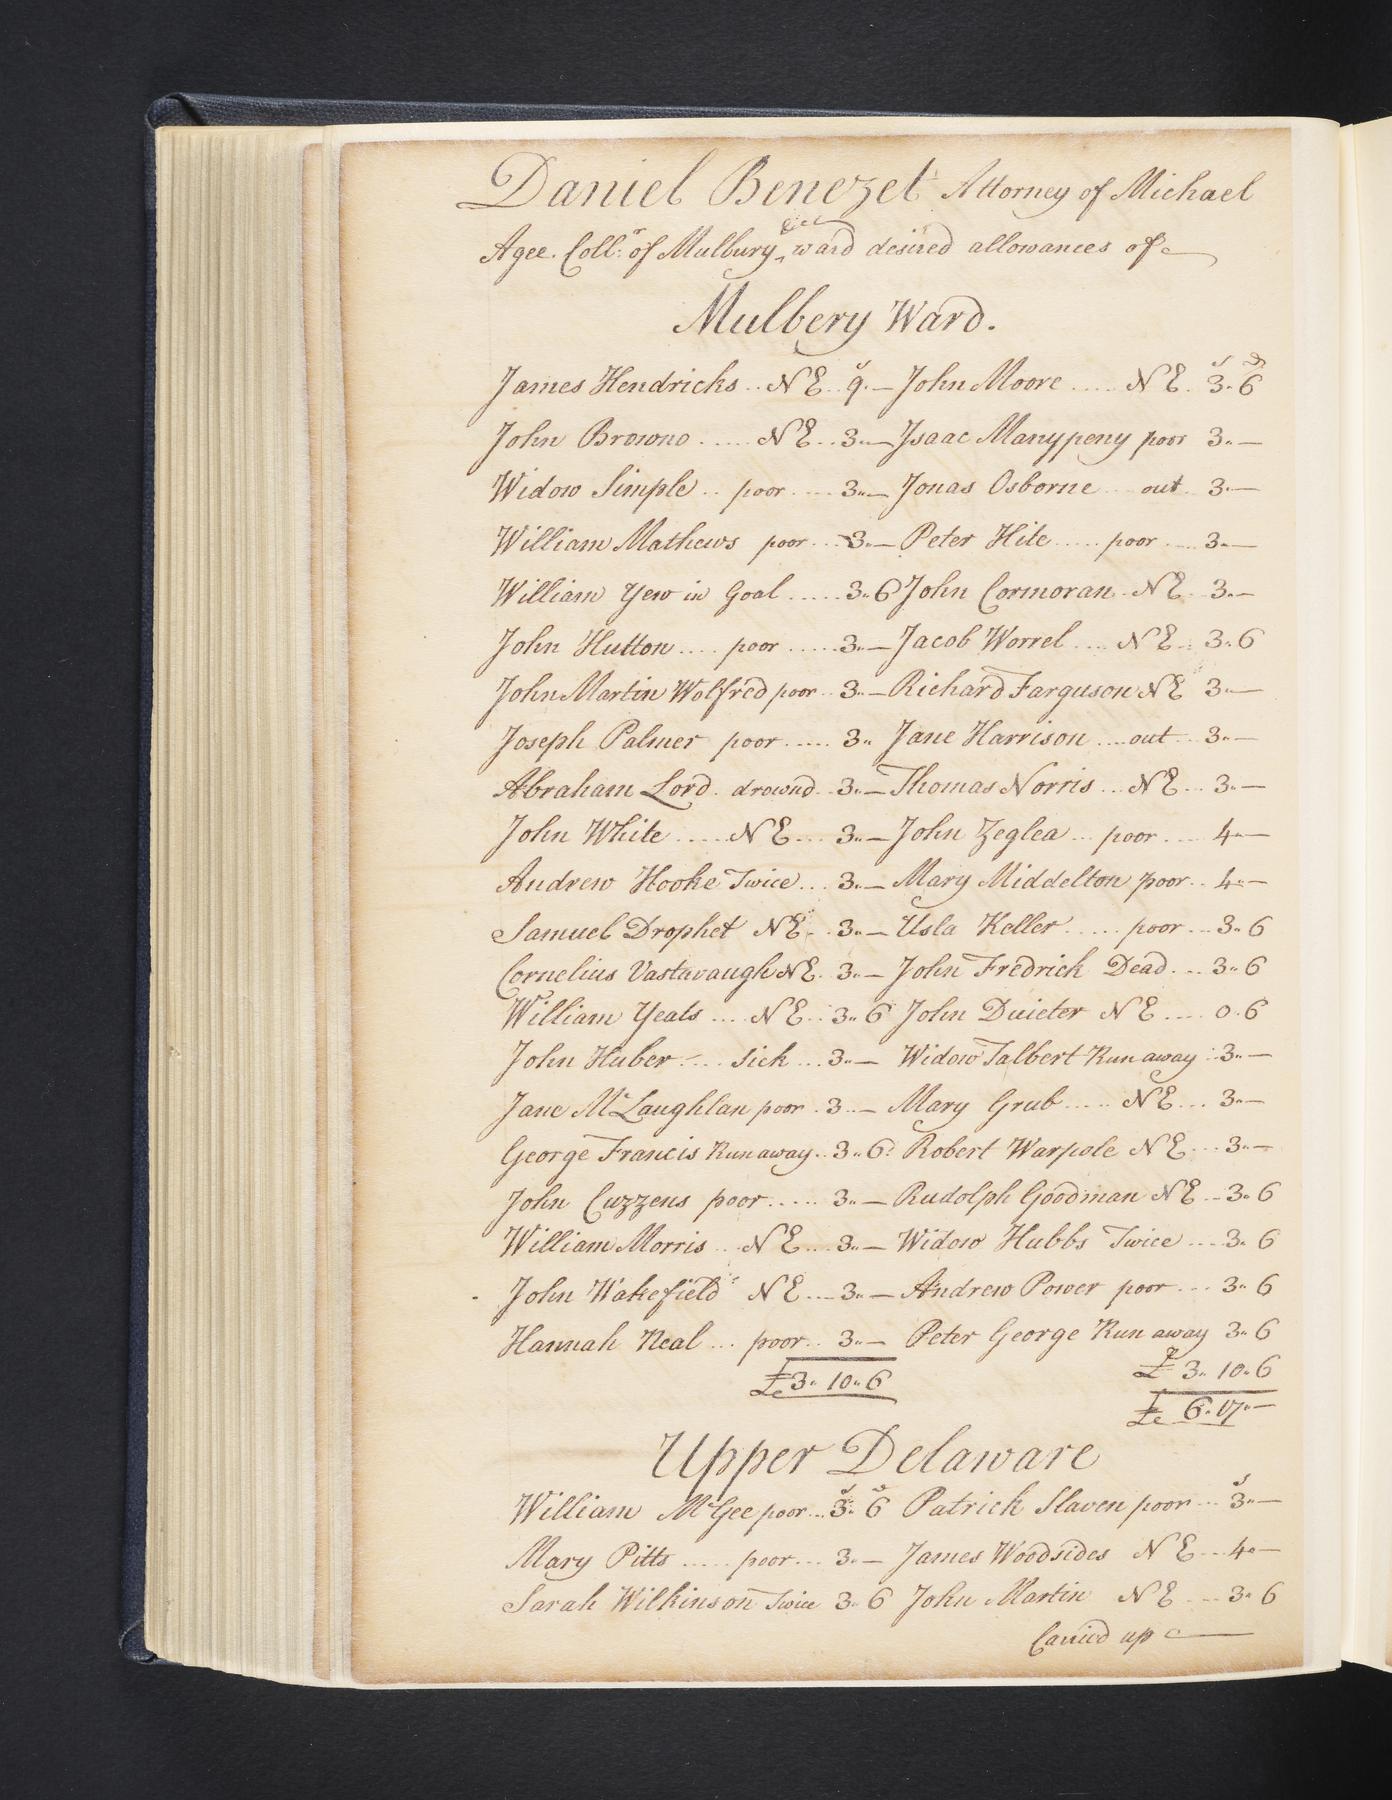 Daniel Benezet Attorney of Michael
Agee. Coll:r of Mulbury &ca ward desired allowances of
Mulbery Ward.
James Hendricks .. N E .. s 9. — John Moore ..... N E . s d 3. 6
John Browne ..... N E .. 3.. — Isaac Manypeny poor 3.. —
Widow Simple .. poor .... 3.. — Jonas Osborne ... out .. 3. —
William Mathews poor ... 3.. — Peter Hite ..... poor .... 3.. —
William Yew in Goal ..... 3.. 6 John Cormoran . N E .. 3.. —
John Hutton .... poor ..... 3.. — Jacob Worrel .... N E .. 3. 6
John Martin Wolfred poor .. 3.. — Richard Farguson N E 3. —
Joseph Palmer poor ..... 3.. Jane Harrison .... out .. 3.. —
Abraham Lord . drownd .. 3.. — Thomas Norris ... N E .. 3.. —
John White ..... N E ... 3.. — John Zeglea ... poor .... 4 —
Andrew Hooke Twice ... 3.. — Mary Middelton poor .. 4.. —
Samuel Drophet N E . . 3.. — Usla Keller ..... poor ... 3.. 6
Cornelius Vastavaugh N E . 3.. — John Fredrick Dead ... 3.. 6
William Yeats .... N E .. 3.. 6 John Duieter N E .... 0. 6
John Huber .... Sick ... 3.. — Widow Talbert Run away . 3.. —
Jane McLaughlan poor . 3.. — Mary Grub ..... N E ... 3.. —
George Francis Run away .. 3.. 6 Robert Warpole N E ... 3.. —
John Cuzzens poor ..... 3.. — Rudolph Goodman N E .. 3. 6
William Morris .. N E ... 3.. — Widow Hubbs Twice .... 3. 6
John Wakefield N E .... 3.. — Andrew Power poor ... 3. 6
Hannah Neal ... poor .. 3.. — Peter George Run away 3. 6
£3.. 10.. 6 £ 3.. 10.. 6
£ 6.. 17.. —
Upper Delaware
William McGee poor ... s d 3. 6 Patrick Slaven poor ... s 3.. —
Mary Pitts ..... poor ... 3.. — James Woodsides N E ... 4.. —
Sarah Wilkinson Twice 3.. 6 John Martin N E ... 3.. 6
Carried up —